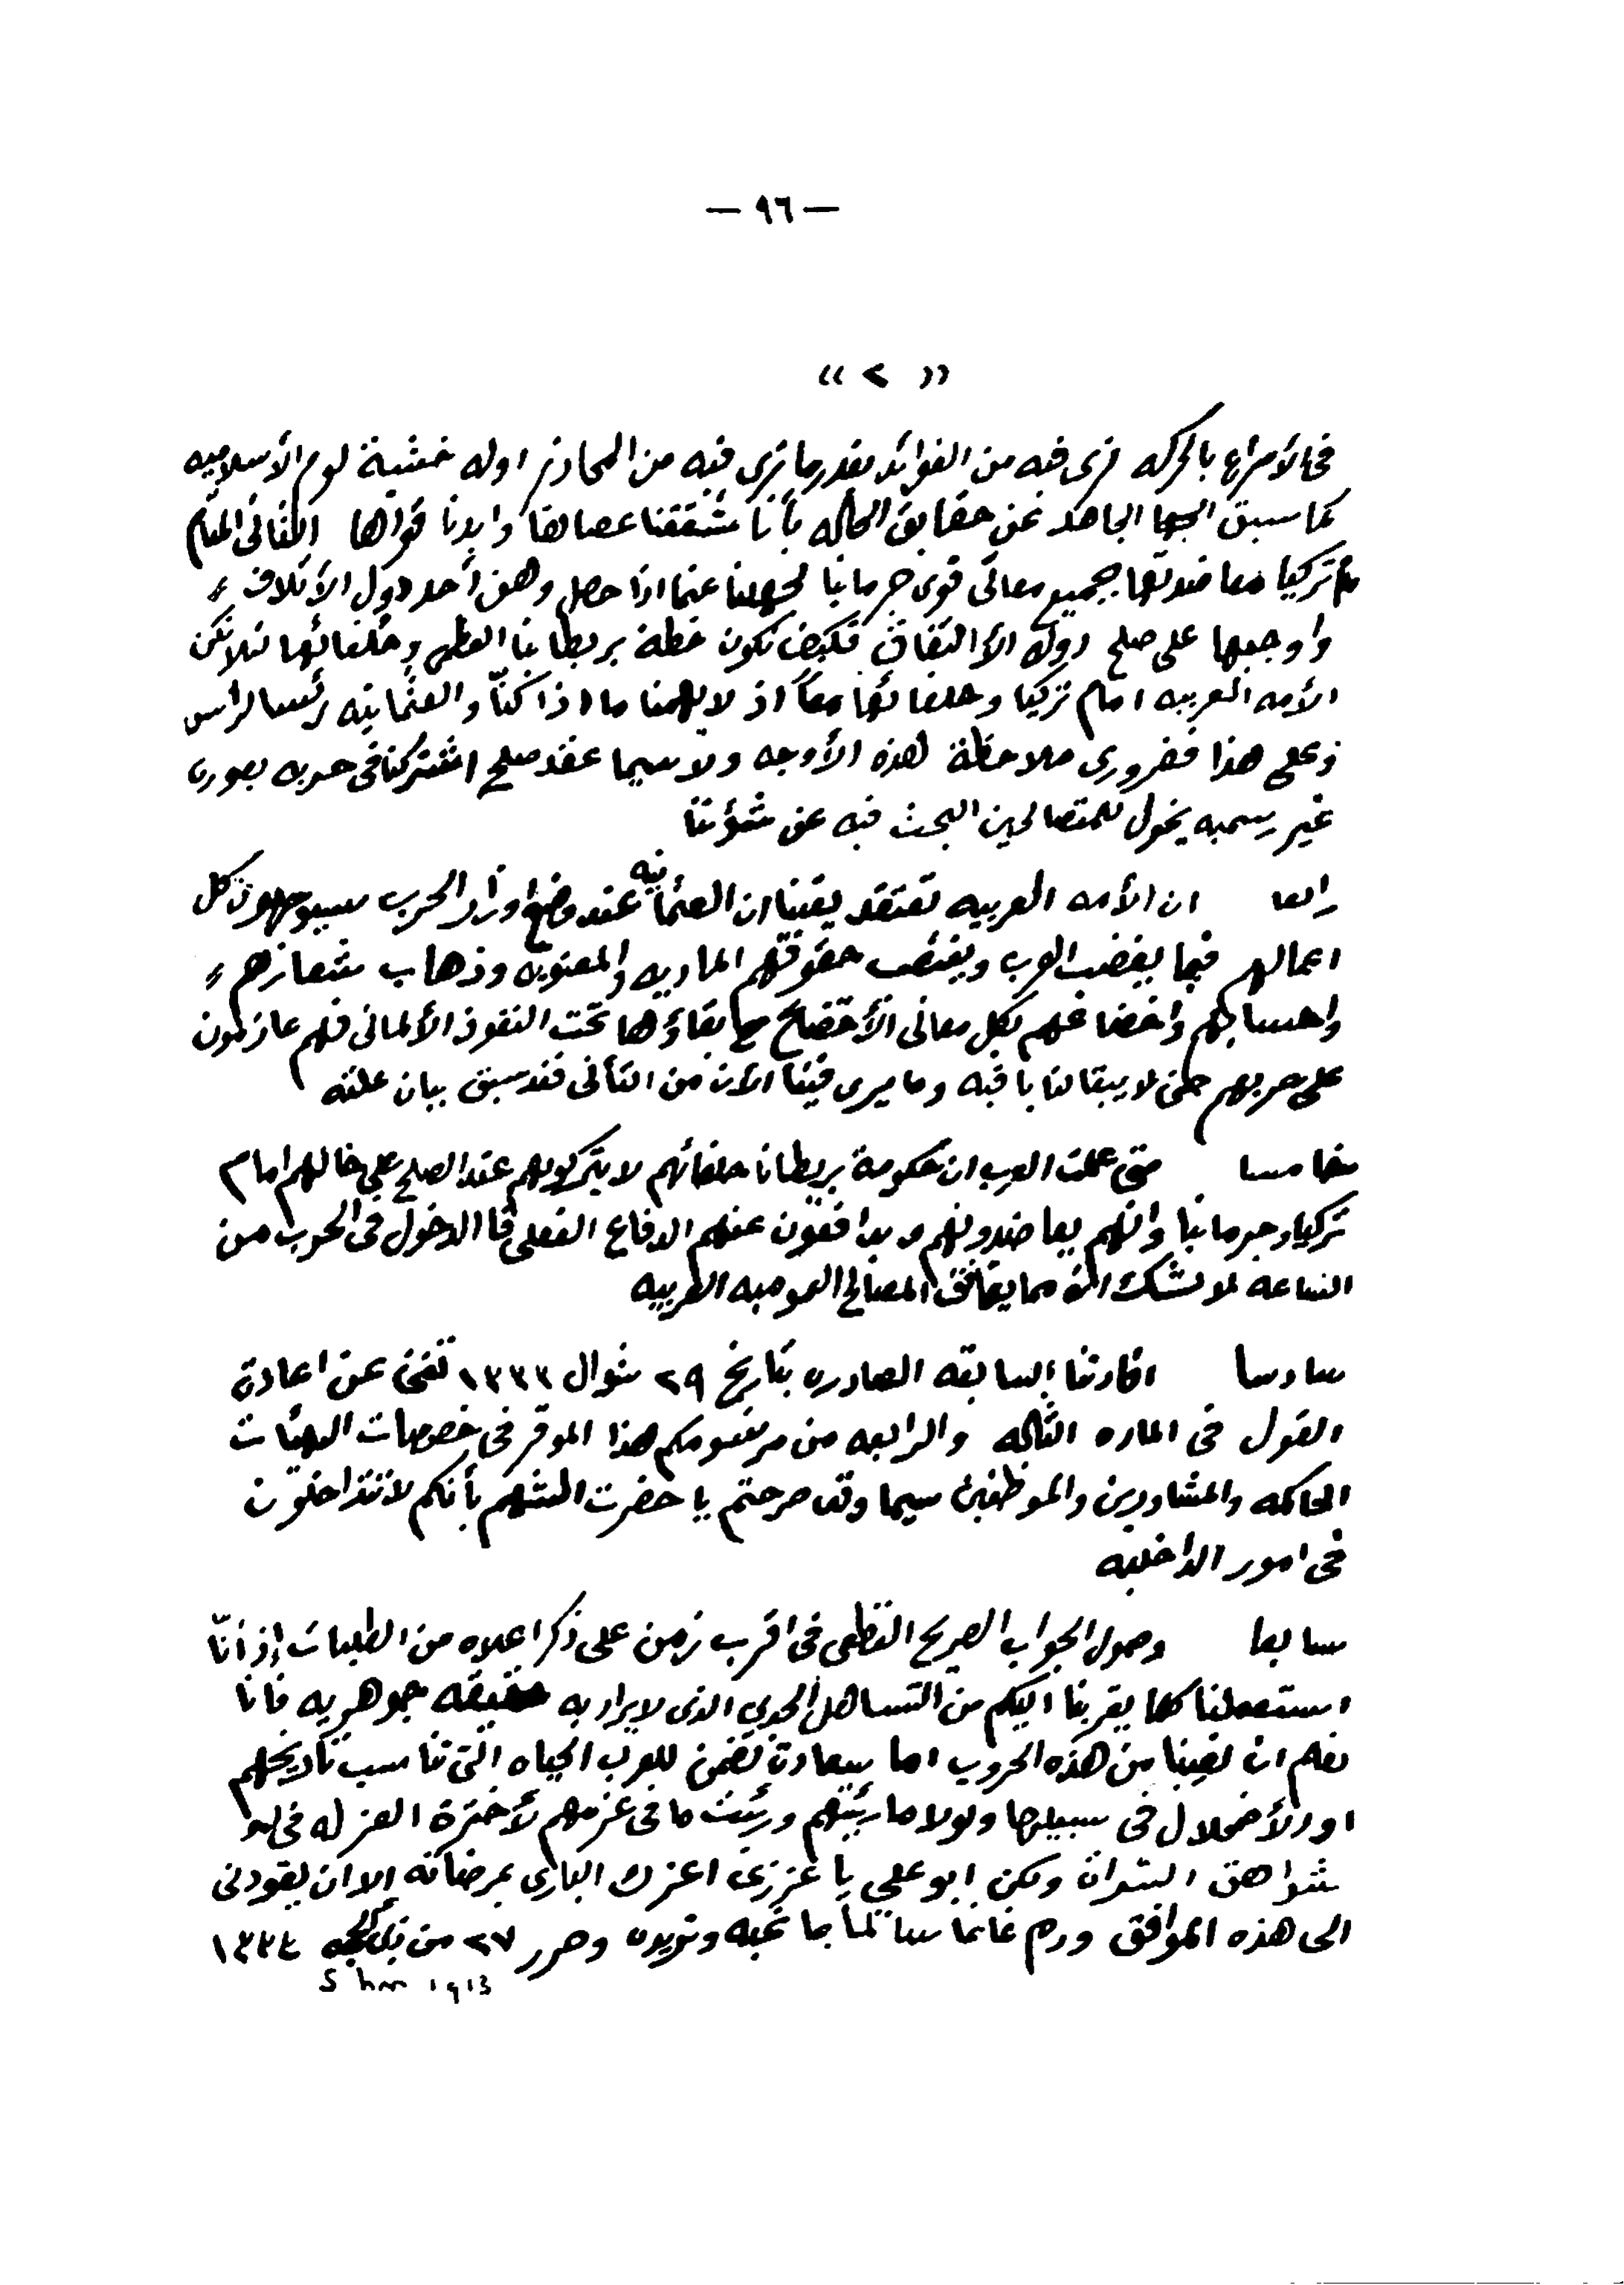 — ٩٦ —
« ٢ »
في الأسراع بالحركه نرى فيه من الفوائد بقدر ما نرى فيه من المحاذر اوله خشية لوم الأسلاميه
كما سبق الجاهد عن حقايق الحاله بأنا شققنا عصاها وابدنا قواها الثاني المقام
تركيا معاضدتها بجميع معاني قوى جرمانيا لجهلنا عنما اذا حصل وهن أحد دول الأئتلاف
واوجبها على صلح دول الأتفاق فكيف تكون خطة بريطانيا العظمى وحلفائها لئلا تكن
الأمه العربيه امام تركيا وحلفائها معاً اذ لا يهمنا ما اذا كنّا والعثمانيه رئسا لراس
وعلى هذا فضرورى ملاحظة هذه الأوجه ولا سيما عقد صلح اشتركنا في حربه بصوره
غير رسميه يخول للمتصالحين البحث فيه عن شؤننا
رابعا ان الأمه العربيه تعتقد يقينا ان العثمانيه عند وضع اوزار الحرب سيوجهون كل
اعمالهم فيما يغضب العرب ويغتصب حقوقهم الماديه والمعنويه وذهاب شعارهم
واحسابهم واخضاعهم بكل معاني الأخضاع مع بقاؤها تحت النفوذ الألماني فهم عازمون
على حربهم حتى لا يبقا لنا باقيه وما يرى فينا الأن من التأنى فقد سبق بيان علته
خامسا متى علمت العرب ان حكومة بريطانيا حلفائهم لا يتركونهم عند الصلح على حالهم امام
تركيا وجرمانيا وانهم يعاضدونهم ويدافعون عنهم الدفاع الفعلى فا الدخول في الحرب من
الساعه لا نشك انه مما يوافق المصالح العموميه العربيه
سادسا افادتنا السابقه الصادره بتاريخ ٢٩ شوال ١٣٣٣ تغنى عن اعادة
القول في الماده الثالثه والرابعه من مرسومكم هذا الموقر في خصوصات الهيئات
الحاكمه والمشاورين والموظفين سيما وقد صرحتم يا حضرت الشهم بأنكم لا تتداخلون
في امور الداخليه
سابعا وصول الجواب الصريح القطعى في اقرب زمن على ذكر اعلاه من الطلبات إذ أنّا
استعملنا كلما يقربنا اليكم من التساهل الجدى الذى لا يراد به حقيقه جوهريه فأنا
نعلم ان نصيبنا من هذه الحروب اما سعادة تضمن للعرب الحياه التى تناسب تاريخهم
او الأضمحلال في سبيلها ولولا ما رئيتهم ورئيت ما في عزمهم لأخترة العزله في
شواهق السراة ولكن ابو علي يا عزيزى اعزك البارى بمرضاته إلا ان يقودنى
الى هذه المواقق ودم غانما سالما بما تحبه وتريده وحرر ٢٧ من ذى الحجه ١٣٣٤